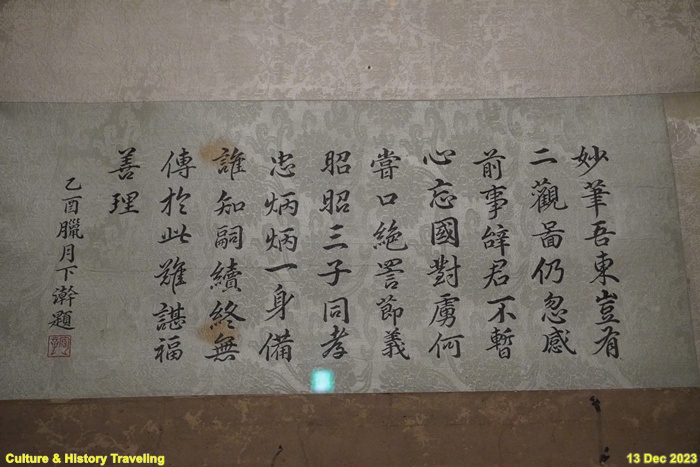 妙筆吾東豈有
二觀畺仍忽感
前事辭君不暫
心忘國對虜何
嘗口絶詈節義
昭昭三子同孝
忠炳炳一身備
誰知嗣續終無
傳於此難諶福
善理
乙酉臘月下澣題
Culture & History Traveling
13 Dec 2023